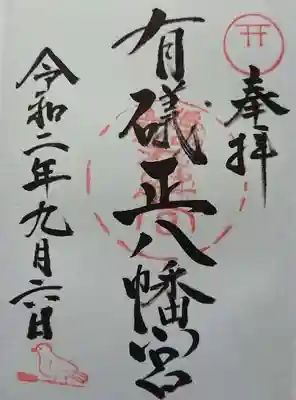 奉拝
有磯正八幡宮
令和二年九月六日